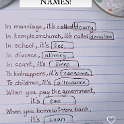 NAMES!
In marriage, it's called dowry
In temple or church, it's called donation
In school, it's Fee
In divorce, alimony
In court, it's Fines
To kidnappers, it's ransom
To children, it's allowance
When you pay the government,
it's tax
When you borrow from bank,
it's Loan